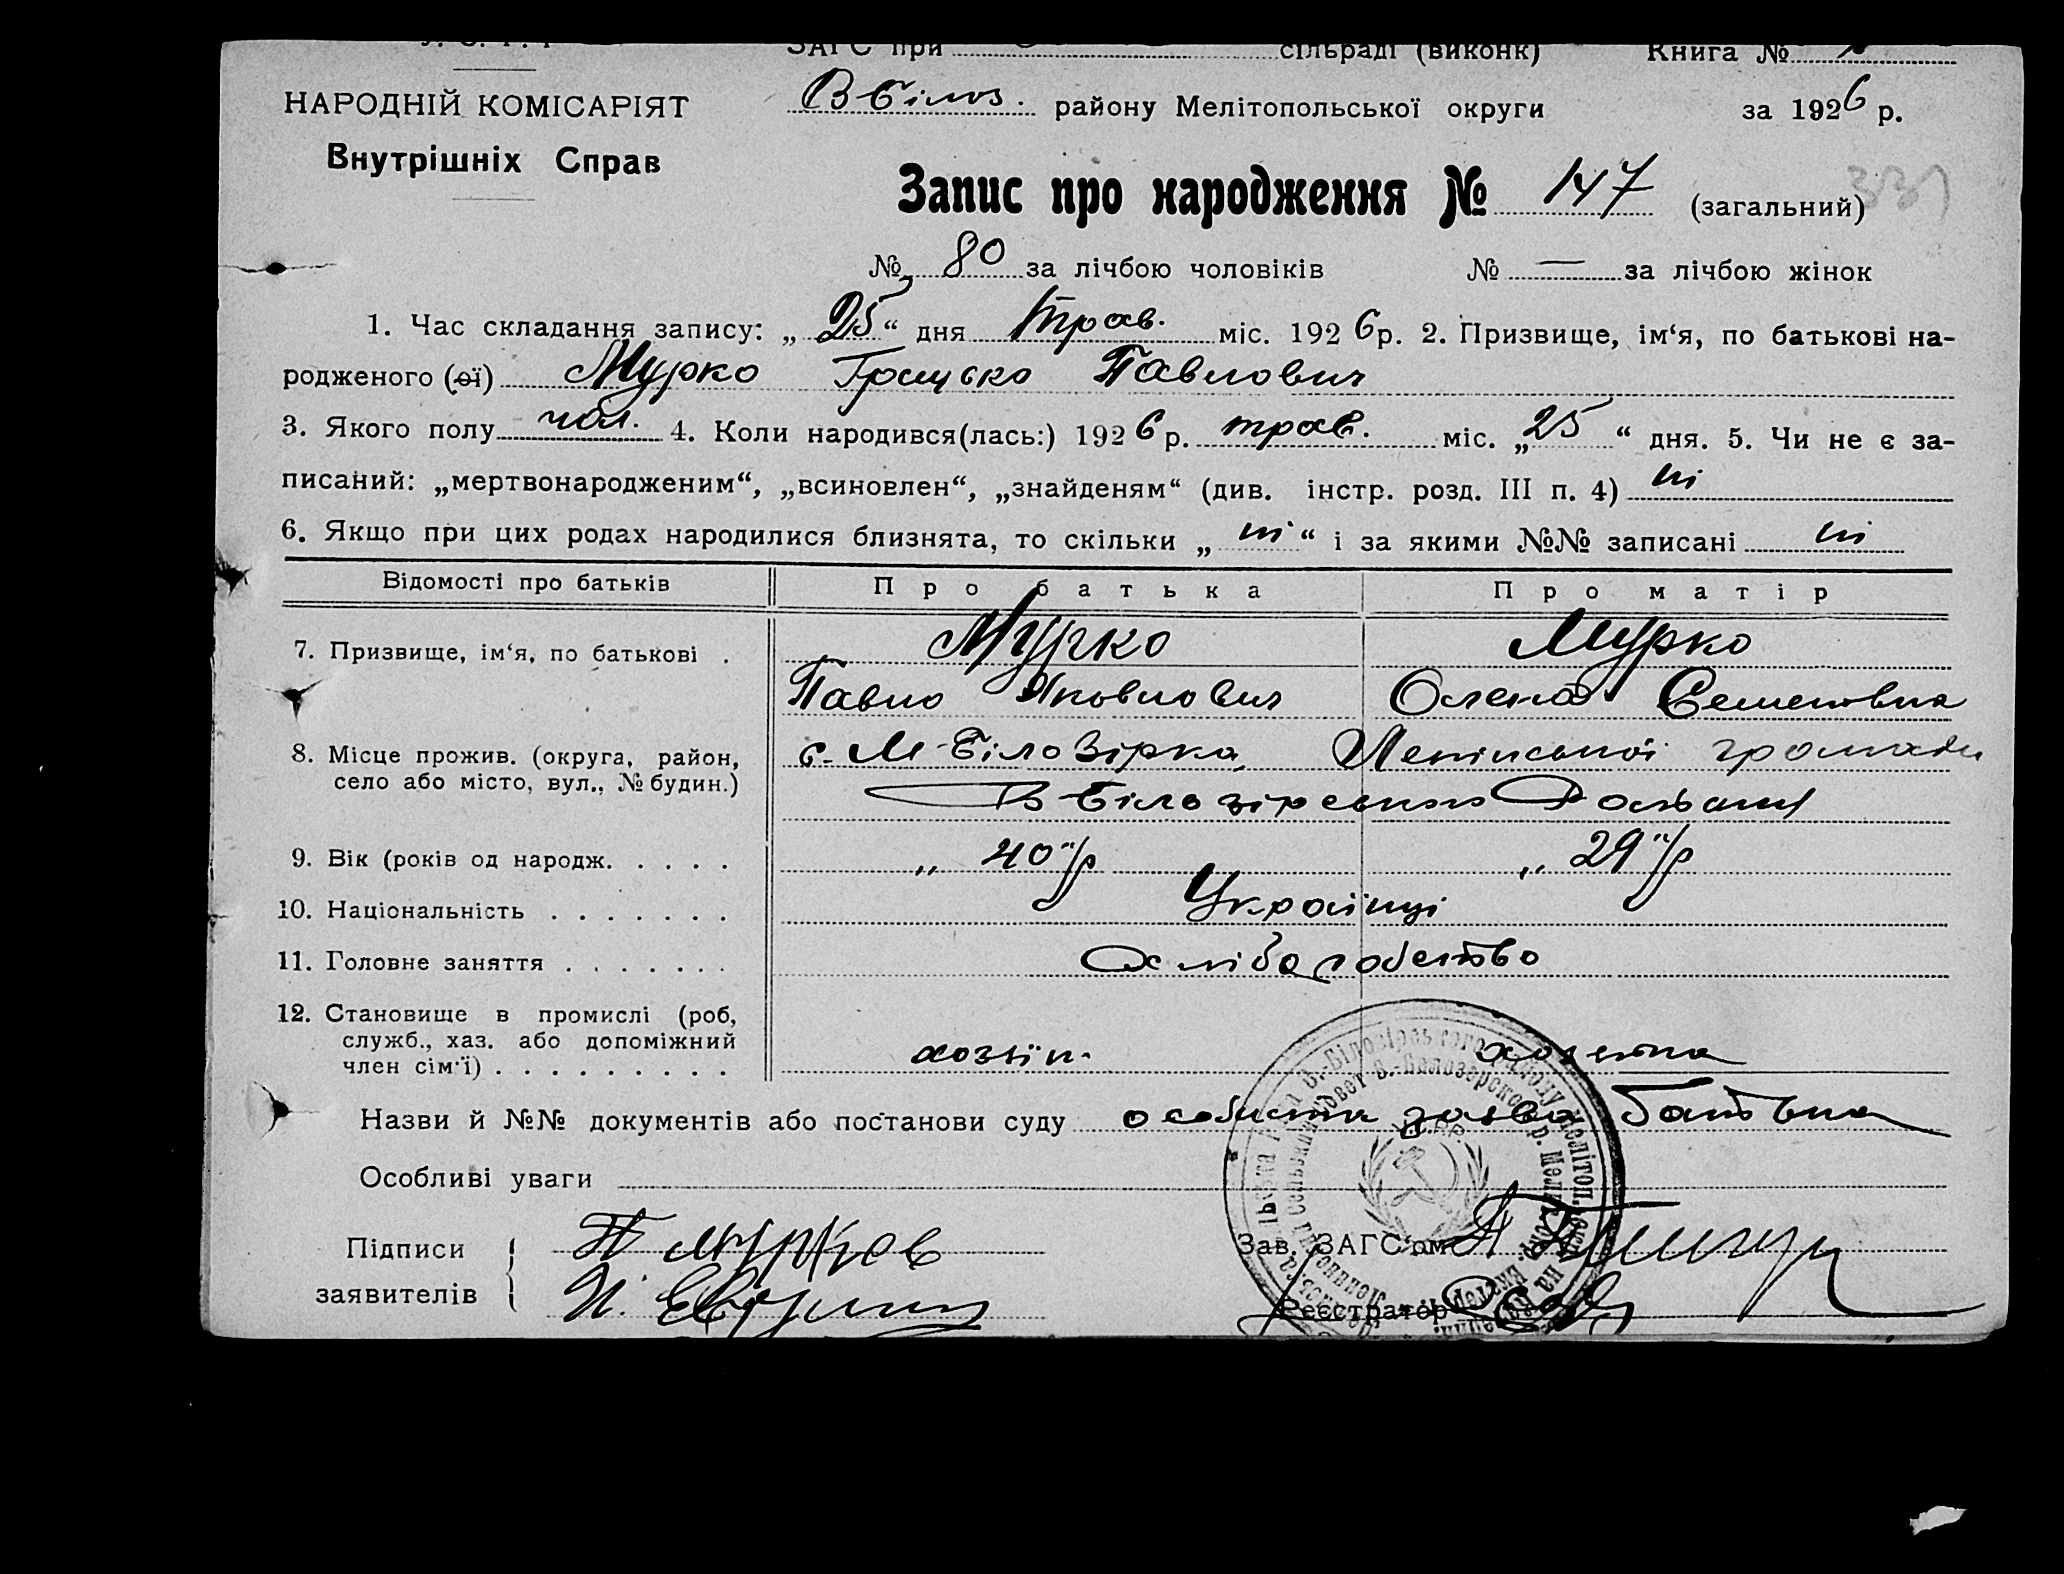 ЗАГС при сільраді (виконк) Книга №
НАРОДНІЙ КОМІСАРІЯТ В Білоз. району Мелітопольської округи за 1926 р.
Внутрішніх Справ
Запис про народження № 147 (загальний) 331
№ 80 за лічбою чоловіків № — за лічбою жінок
1. Час складання запису: „25“ дня трав. міс. 1926 р. 2. Призвище, ім‘я, по батькові на-
родженого (ої) Мурко Грицько Павлович
3. Якого полу чол. 4. Коли народився(лась:) 1926 р. трав. міс. „25“ дня. 5. Чи не є за-
писаний: „мертвонародженим“, „всиновлен“, „знайденям“ (див. інстр. розд. III п. 4) ні
6. Якщо при цих родах народилися близнята, то скільки „ні“ і за якими №№ записані ні
Відомості про батьків Про батька Про матір
7. Призвище, ім‘я, по батькові . Мурко Мурко
Павло Яковлович Олена Семеновна
8. Місце прожив. (округа, район, с. М-Білозірка, Ленінської громади
село або місто, вул., № будин.) В Білозірського Району
9. Вік (років од народж. . . . . „ 40 “ р „ 29 “ р
10. Національність . . . . . . . Українці
11. Головне заняття . . . . . . . Хліборобство
12. Становище в промислі (роб,
служб., хаз. або допоміжний
член сім‘ї) . . . . . . . . . хозяїн. хозяйка
Назви й №№ документів або постанови суду особиста заява батька
Особливі уваги
Підписи П Мурков Зав. ЗАГС‘ом
заявителів Реєстратор